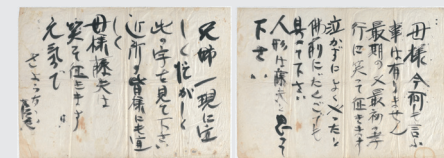 母様今何も言ふ
事は有りません
最期の又最初の孝
行に笑って征きます
泣かずによくやったと
仏前に
具って下さい
人形は藤夫と思って
下さい
兄姉
此の字を見て下さい
近所の皆様にも宜
しく
母様藤夫は
笑って征きます
元気で
さようなら